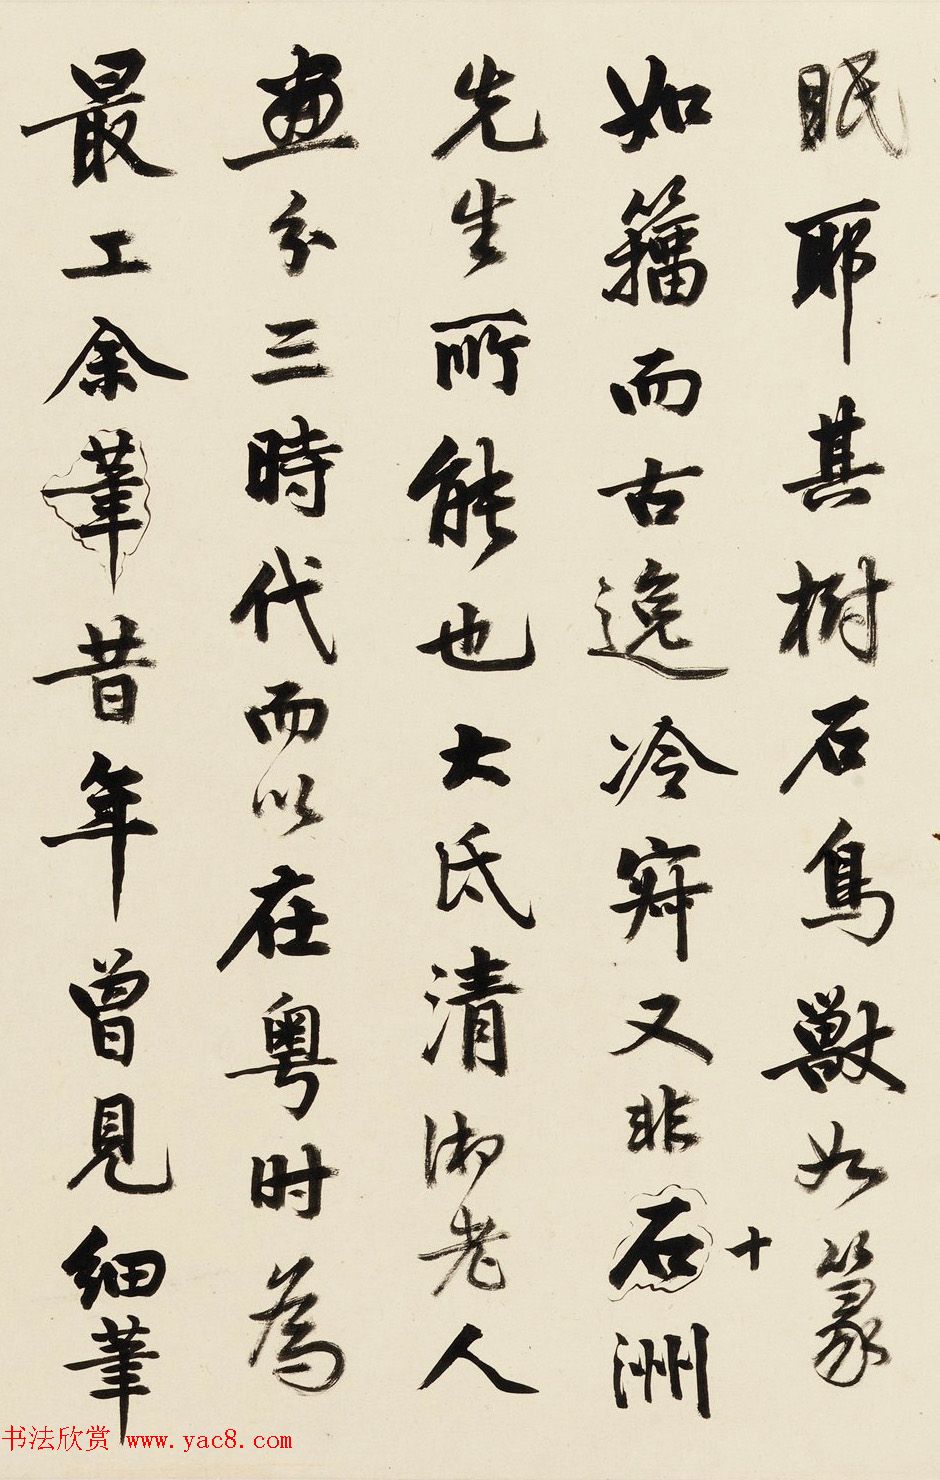 眠耶其樹石鳥獸如篆
如籀而古逸冷穽又非石十洲
先生所能也大氐清湘老人
畫分三時代而以在粵时為
最工余筆昔年曾見細筆
书法欣赏 www.yac8.com